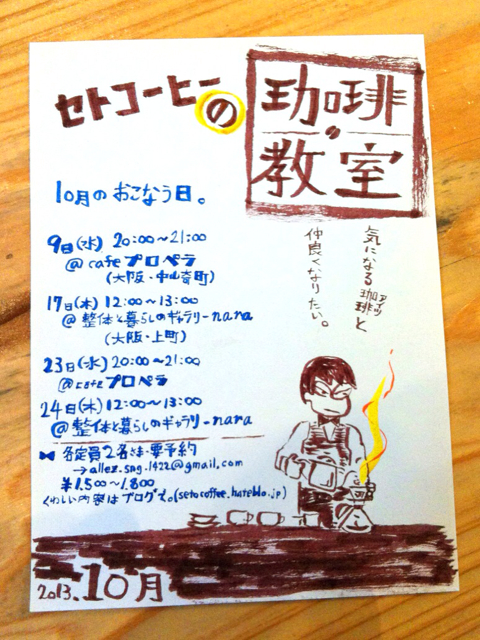 セトコーヒーの
珈琲
の
教室
10月のおこなう日。
気になる珈琲と
アイツ
仲良くなりたい。
9日(水) 20:00~21:00
@cafe プロペラ
(大阪・中崎町)
17日(木) 12:00~13:00
@整体と暮らしのギャラリーnara
(大阪・上町)
23日(水) 20:00~21:00
@cafe プロペラ
24日(木) 12:00~13:00
@整体と暮らしのギャラリーnara
各定員2名さま・要予約
→allez.sng.1422@gmail.com
¥1.500~1.800
くわしい内容はブログで。(setocoffee.hateblo.jp)
2013.10月